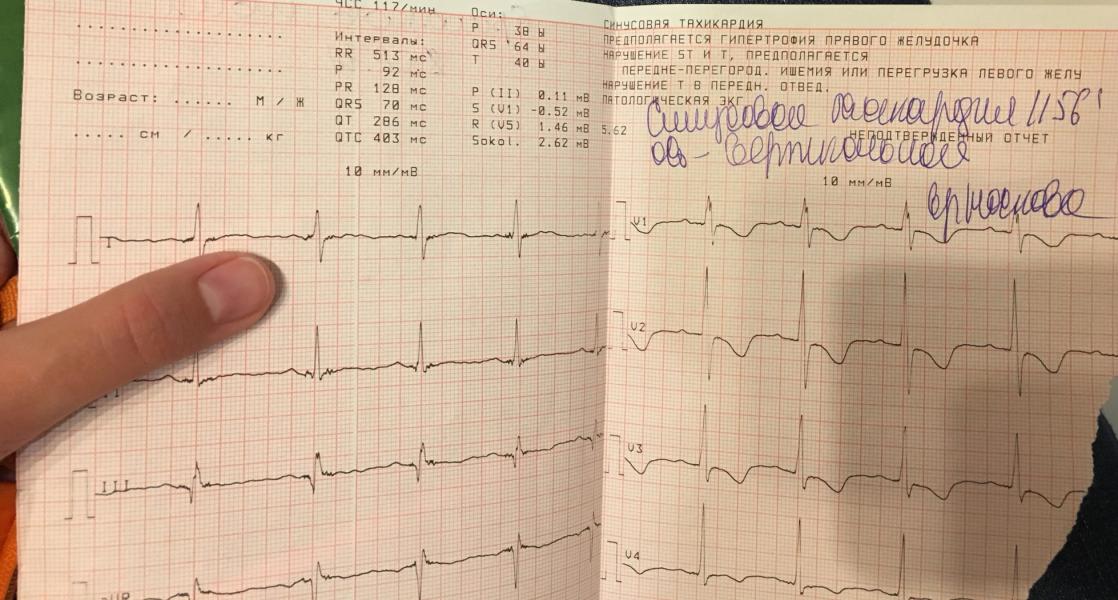 ЧСС 117/мин
Интервалы:
RR 513 мс
P 92 мс
PR 128 мс
QRS 70 мс
QT 286 мс
QTC 403 мс
Возраст: ...... М / Ж
..... см / ..... кг
Оси:
P 38
QRS 64
T 40
P (II) 0.11 мВ
S (V1) -0.52 мВ
R (V5) 1.46 мВ
Sokol. 2.62 мВ
10 мм/мВ
СИНУСОВАЯ ТАХИКАРДИЯ
ПРЕДПОЛАГАЕТСЯ ГИПЕРТРОФИЯ ПРАВОГО ЖЕЛУДОЧКА
НАРУШЕНИЕ ST И T, ПРЕДПОЛАГАЕТСЯ
ПЕРЕДНЕ-ПЕРЕГОРОД. ИШЕМИЯ ИЛИ ПЕРЕГРУЗКА ЛЕВОГО ЖЕЛУ
НАРУШЕНИЕ T В ПЕРЕДН. ОТВЕД.
ПАТОЛОГИЧЕСКАЯ ЭКГ
5.62
НЕПОДТВЕРЖДЕННЫЙ ОТЧЕТ
Синусовая тахикардия 115б'
ось - вертикальная
10 мм/мВ
I
III
V1
V2
V3
V4